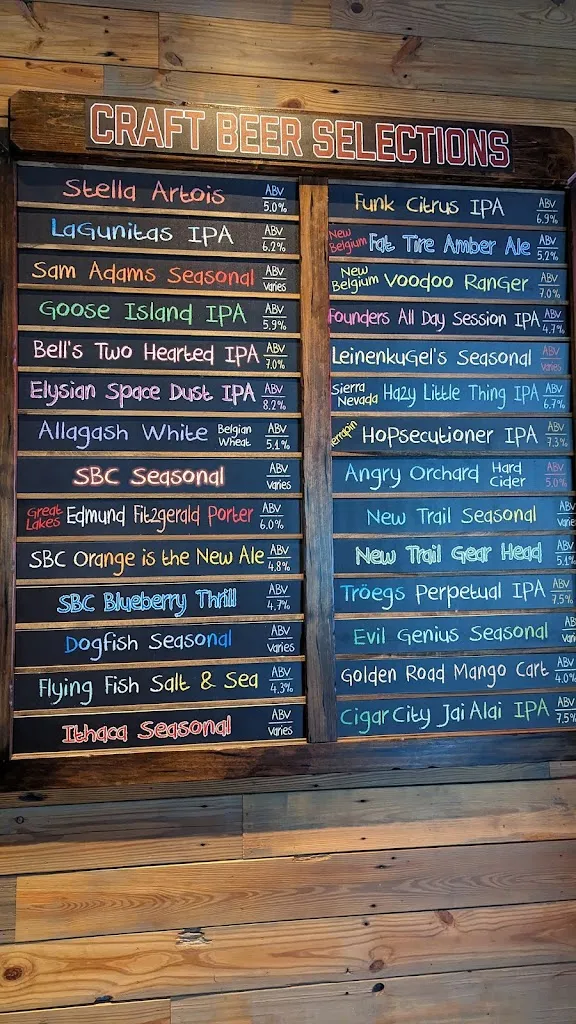 CRAFT BEER SELECTIONS
Stella Artois ABV 5.0%
LaGunitas IPA ABV 6.2%
Sam Adams Seasonal ABV varies
Goose Island IPA ABV 5.9%
Bell's Two Hearted IPA ABV 7.0%
Elysian Space Dust IPA ABV 8.2%
Allagash White Belgian Wheat ABV 5.1%
SBC Seasonal ABV varies
Great Lakes Edmund Fitzgerald Porter ABV 6.0%
SBC Orange is the New Ale ABV 4.8%
SBC Blueberry Thrill ABV 4.7%
Dogfish Seasonal ABV varies
Flying Fish Salt & Sea ABV 4.3%
Ithaca Seasonal ABV varies
Funk Citrus IPA ABV 6.9%
New Belgium Fat Tire Amber Ale ABV 5.2%
New Belgium Voodoo Ranger ABV 7.0%
Founders All Day Session IPA ABV 4.7%
LeinenkuGel's Seasonal ABV varies
Sierra Nevada Hazy Little Thing IPA ABV 6.7%
Terrapin HoPsecutioner IPA ABV 7.3%
Angry Orchard Hard Cider ABV 5.0%
New Trail Seasonal ABV varies
New Trail Gear Head ABV 5.1%
Tröegs Perpetual IPA ABV 7.5%
Evil Genius Seasonal ABV
Golden Road Mango Cart ABV 4.0%
Cigar City Jai Alai IPA ABV 7.5%